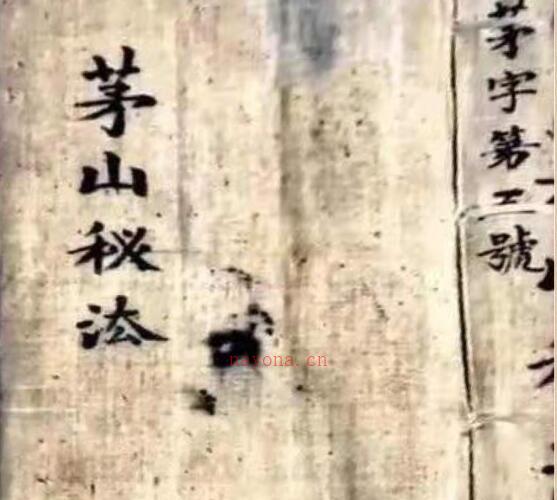 茅字第三號
茅山秘法
nayona.cn